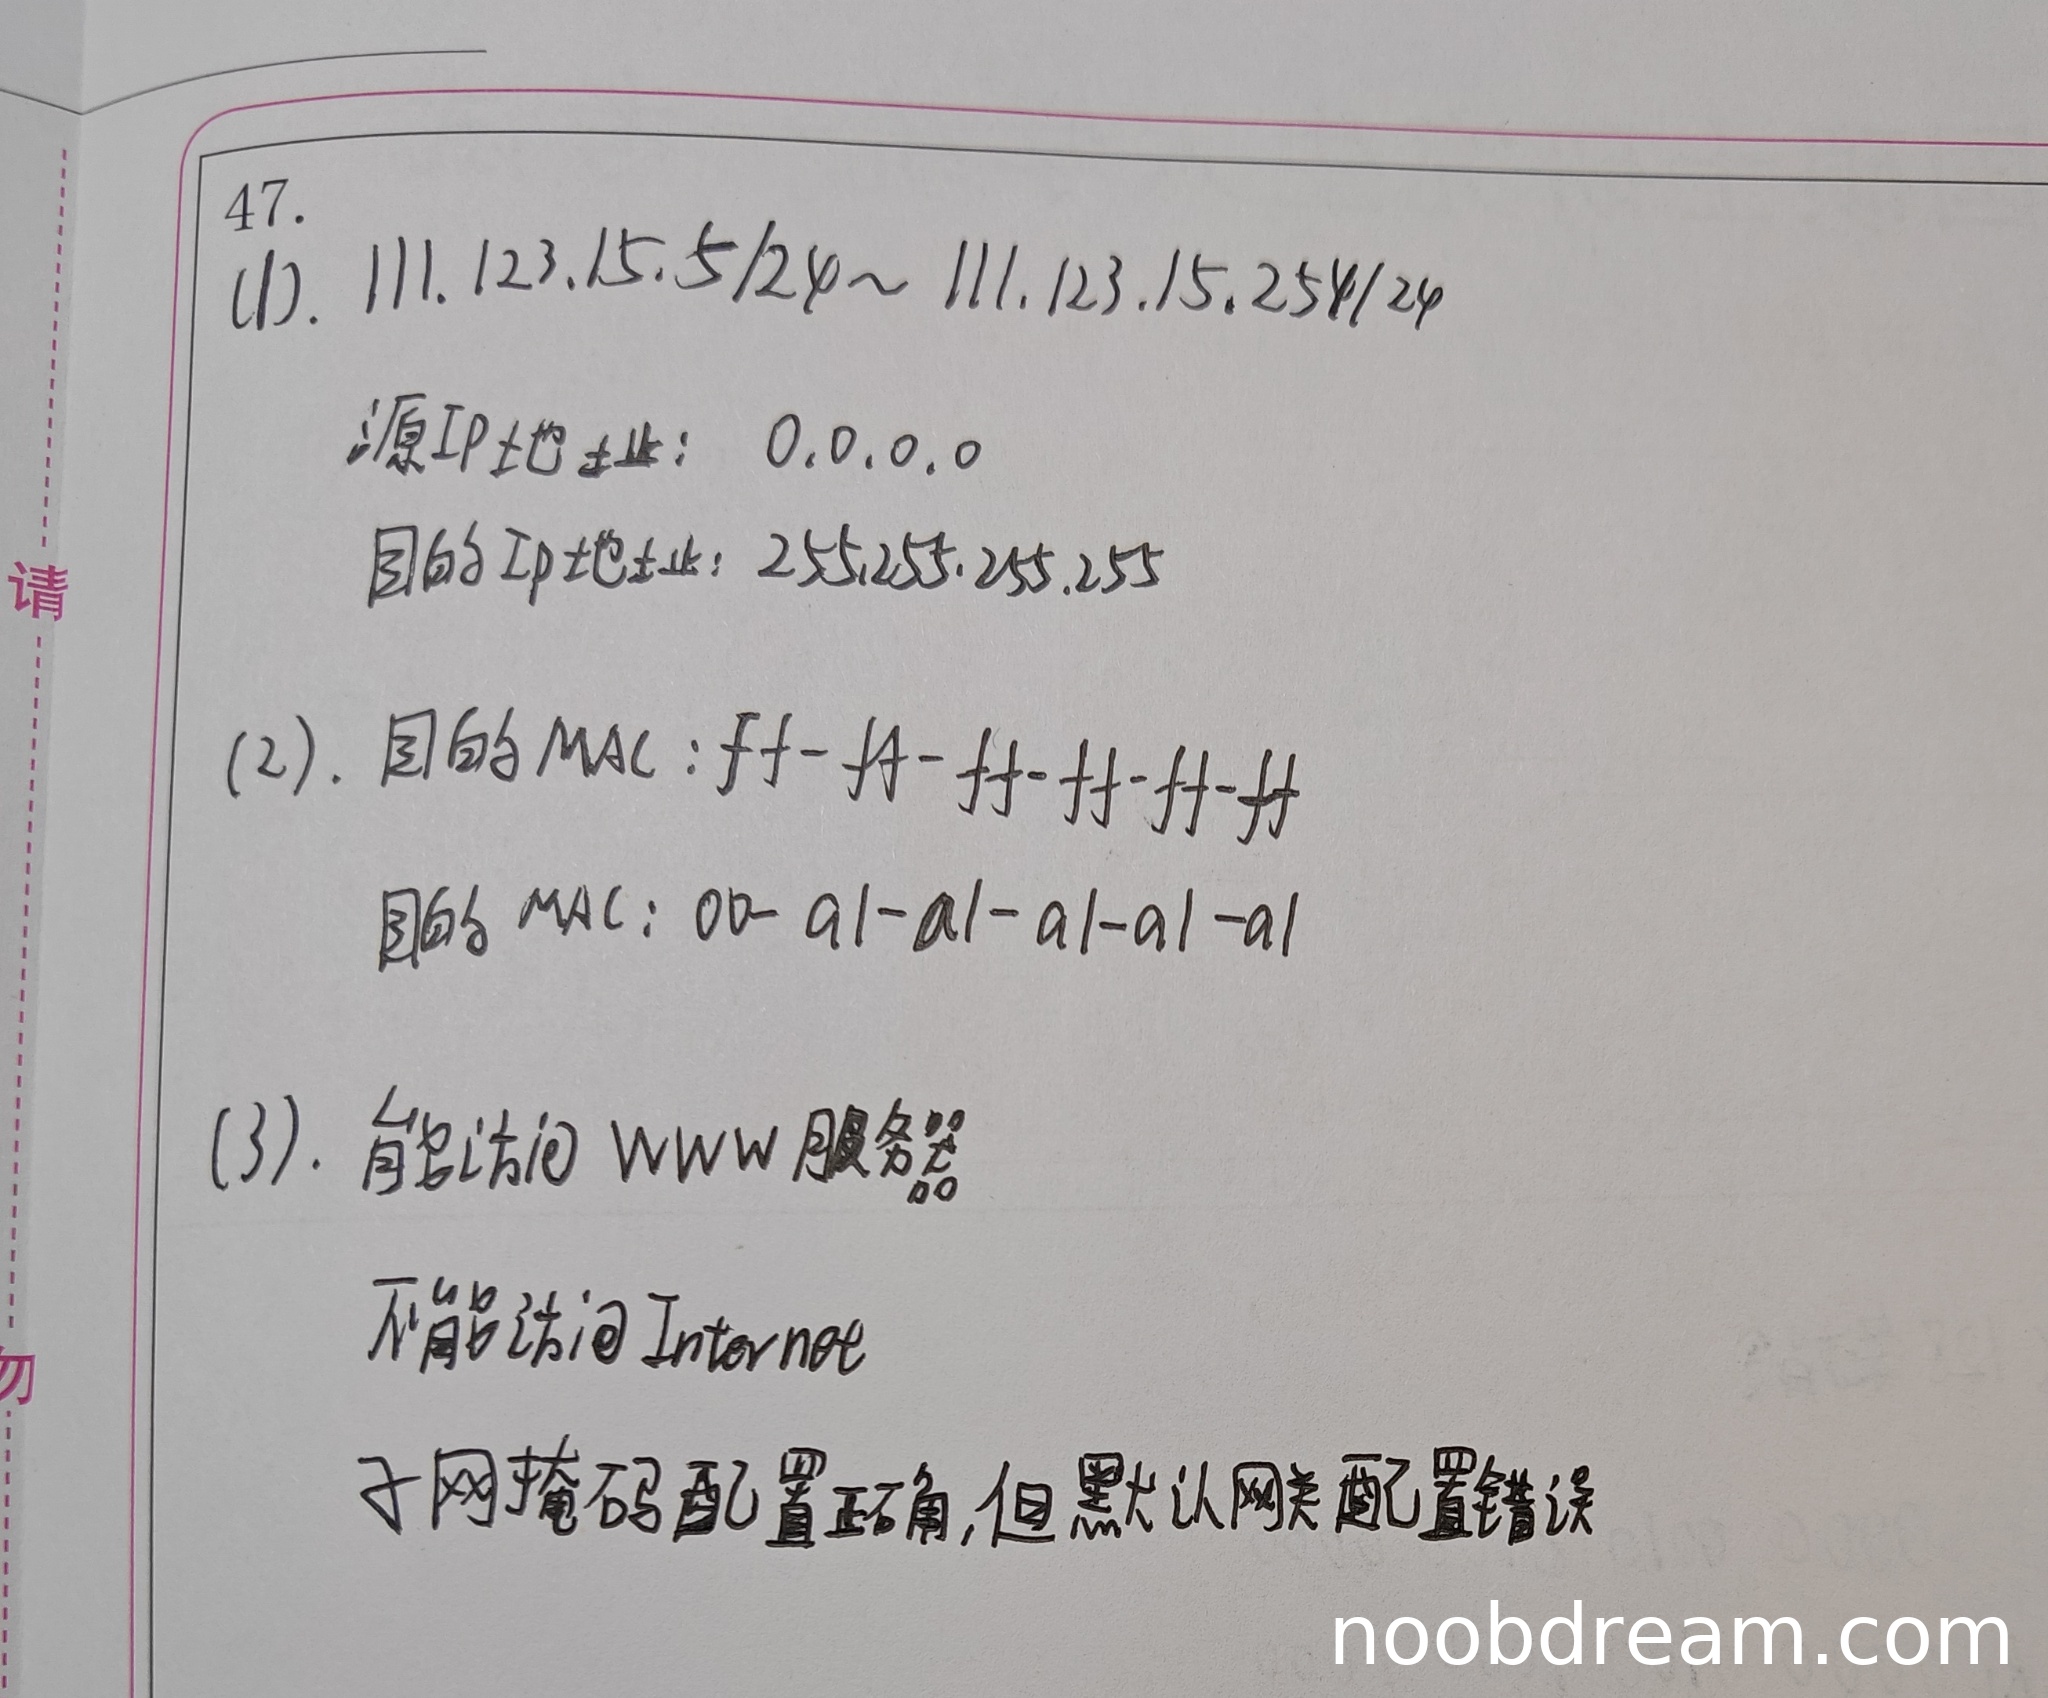 47.
(1). 111.123.15.5/24～111.123.15.254/24
源IP地址: 0.0.0.0
目的Ip地址: 255.255.255.255
(2). 目的MAC: ff-ff-ff-ff-ff-ff
目的MAC: 00-a1-a1-a1-a1-a1
(3). 能访问 WWW 服务器
不能访问Internet
子网掩码配置正确,但默认网关配置错误
请
勿
noobdream.com